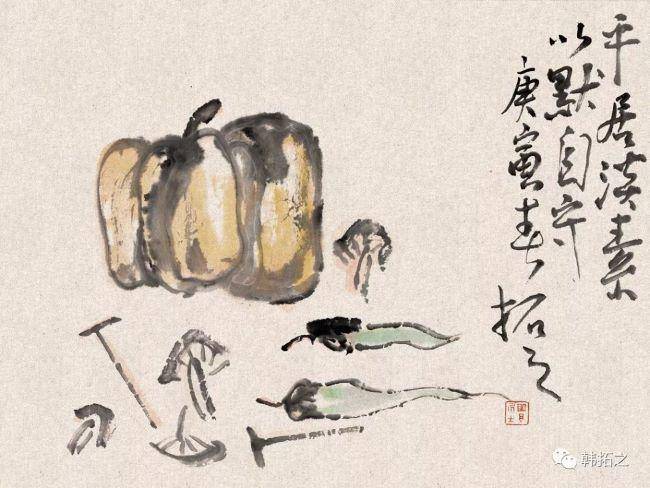 平居淡素
以默自守
庚寅春拓之
韩拓之